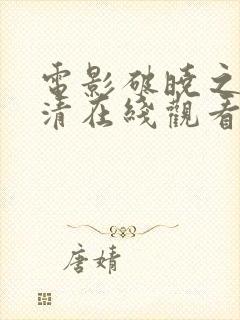 電影破曉之
清在綫觀看
唐婧